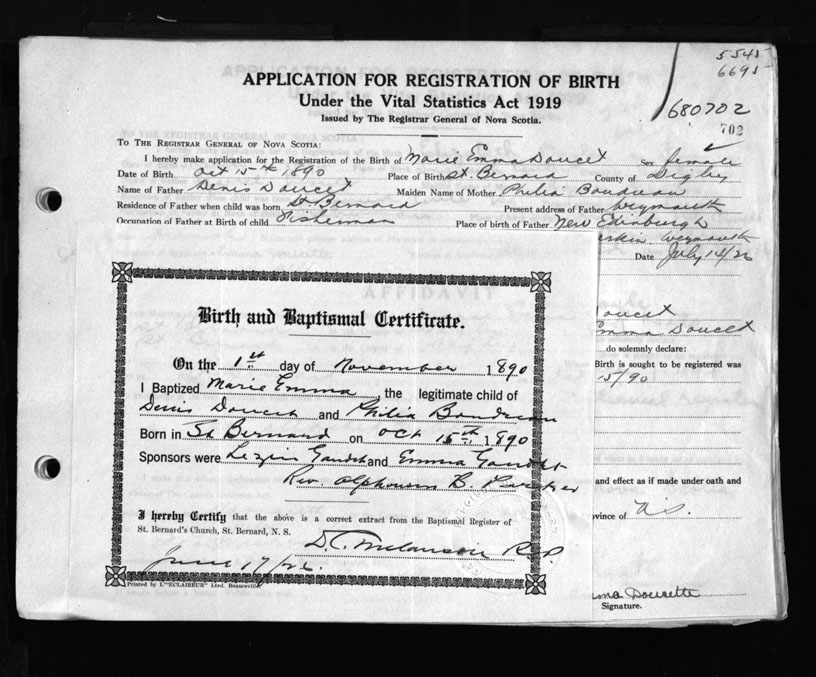 5545
6695
APPLICATION FOR REGISTRATION OF BIRTH
Under the Vital Statistics Act 1919
Issued by The Registrar General of Nova Scotia.
680702
702
TO THE REGISTRAR GENERAL OF NOVA SCOTIA:
I hereby make application for the Registration of the Birth of Marie Emma Doucet Sex female
Date of Birth Oct 15th 1890 Place of Birth St. Bernard County of Digby
Name of Father Denis Doucet Maiden Name of Mother Philia Boudreau
Residence of Father when child was born St Bernard Present address of Father Weymouth
Occupation of Father at Birth of child Fisherman Place of birth of Father New Edinburgh
Weymouth
Date July 14/26
AFFIDAVIT
Doucet
Emma Doucet
do solemnly declare:
Birth is sought to be registered was
15/90
and effect as if made under oath and
vince of N.S.
ma Doucette
Signature.
Birth and Baptismal Certificate.
On the 1st day of November 1890
I Baptized Marie Emma, the legitimate child of
Denis Doucet and Philia Boudreau
Born in St Bernard on Oct 15th 1890
Sponsors were Gaudet and Emma Gaudet
Rev. Alphonse B.
I hereby Certify that the above is a correct extract from the Baptismal Register of
St. Bernard's Church, St. Bernard, N. S.
D. C. Melanson P.P.
June 17/26
Printed by L'"ECLAIREUR" Lted. Beauceville